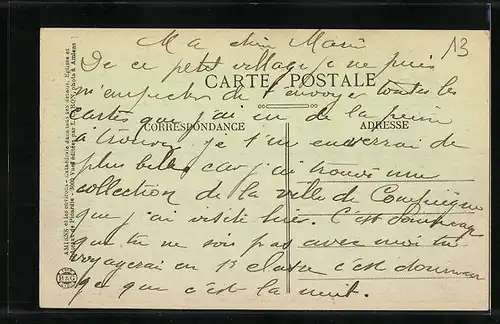 13
Ma chère Marie
De ce petit village je ne puis
m'empecher de t'envoyer toutes les
CARTE POSTALE
cartes que j'ai eu de la peine
CORRESPONDANCE
ADRESSE
à trouver je t'en enverrai de
plus belles car j'ai trouvé une
collection de la ville de Compiègne
que j'ai visité hier. C'est dommage
que tu ne sois pas avec moi tu
voyagerai en 1re classe c'est dommage
ge que c'est la nuit.
AMIENS et les environs - Cathédrale dans tous ses détails, Eglises et
B&G